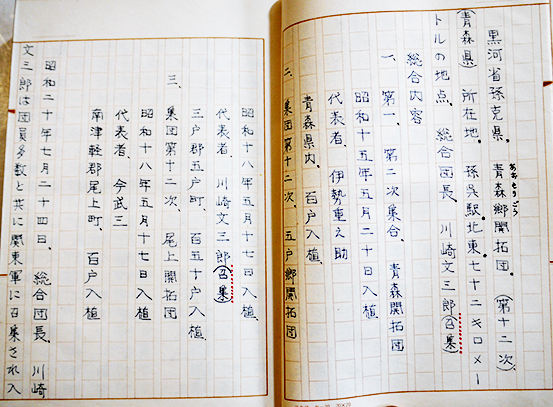 黒河省孫克県。青森郷開拓団。第十二次。
あおもりごう
(青森県)所在地。孫呉駅。北東。七十二キロメー
トルの地点、総合団長、川崎文三郎(召集)
総合内容
一、第一、第二次集合、青森開拓団
昭和十五年五月二十日入植
代表者、伊勢重之助
青森県内、百戸入植、
二、集団第十二次、五戸郷開拓団
昭和十八年五月十七日入植、
代表者、川崎文三郎(召集)
三戸郡五戸町、百五十戸入植、
三、集団第十二次、尾上開拓団
昭和十八年五月十七日入植
代表者、今武三
南津軽郡尾上町、百戸入植
昭和二十年七月二十四日、総合団長、川崎
文三郎は団員多数と共に関東軍に召集され入